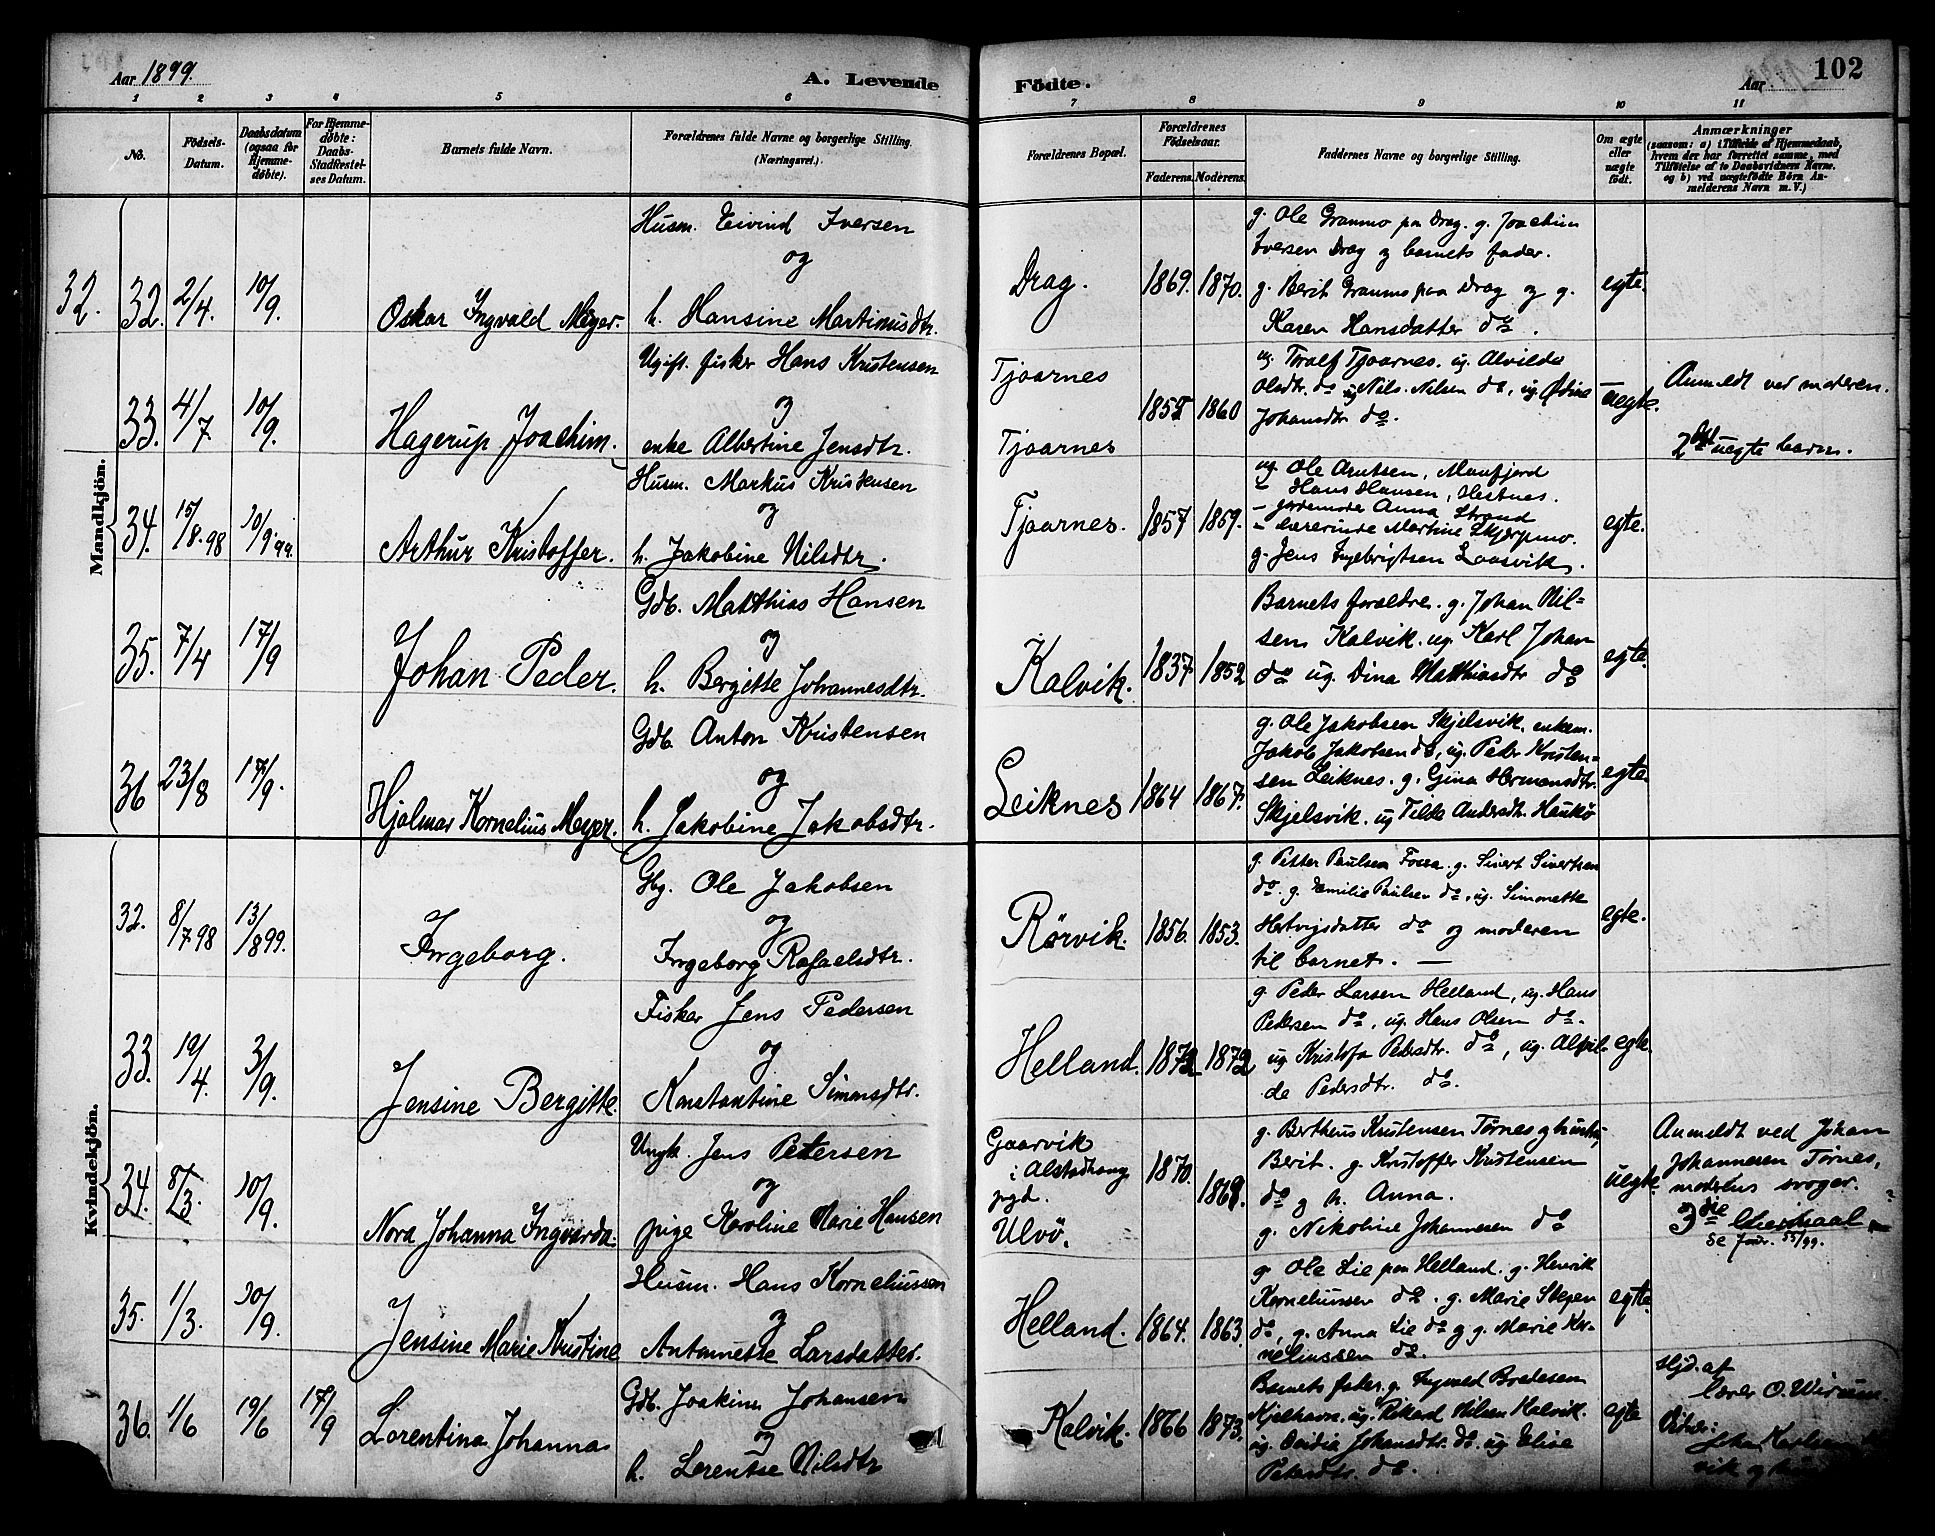 Aar 1899.
A. Levende
Födte.
Aar
102
1 2 3 4 5 6 7 8 9 10 11
No.
Födsels-Datum.
Daabsdatum (ogsaa for Hjemme-döbte).
For Hjemme-döbte: Daabs-Stadfæstel-ses Datum.
Barnets fulde Navn.
Forældrenes fulde Navne og borgerlige Stilling. (Næringsvei.)
Forældrenes Bopæl.
Forældrenes Födselsaar.
Faderens. Moderens.
Faddernes Navne og borgerlige Stilling.
Om ægte eller uægte födt.
Anmærkninger
(saasom: a) i Tilfælde af Hjemmedaab,
hvem der har forrettet samme, med
Tilföielse af to Daabsvidners Navne.
og b) ved uægtefödte Börn An-
melderens Navn m. V.)
Mandkjön.
32. 32. 2/4. 10/9.
Oskar Ingvald Meyer.
Husm. Eivind Iversen
og
h. Hansine Martinusdtr.
Drag.
1869. 1870.
g. Ole Granmo paa Drag. g. Joachim
Iversen Drag og barnets fader.
g. Berit Granmo paa Drag og g.
Karen Hansdatter do.
egte.
33. 4/7. 10/9.
Hagerup Joachim.
Ugift. fisker Hans Kristensen
og
enke Albertine Jensdtr.
Tjoarnes
Tjoarnes
1860
ug. Toralf Tjoarnes. ug. Alvilde
Olsdtr. do ug Nils Nilsen do, ug.
Johansdtr do.
uegte.
Anmeldt ved moderen.
2det uegte barn.
34. 15/8.98 10/9.99.
Arthur Kristoffer.
Husm. Markus Kristensen
og
h. Jakobine Nilsdtr.
Tjoarnes.
1857 1859.
ug Ole Arntsen, Maufjord
- Hans Hansen, Hestnes.
- jordemoder Anna Strand
- lærerinde Martine Skjerpmo.
g. Jens Ingebrigtsen Laasvik.
egte.
35. 7/4 17/9
Johan Peder.
Gdb. Matthias Hansen
og
h. Bergitte Johannesdtr.
Kalvik.
1837 1852
Barnets forældre. g. Johan Nil-
sen Kalvik. ug. Karl Johan
do ug. Dina Matthiasdtr do
egte.
36 23/8 17/9.
Hjalmar Kornelius Meyer.
Gdb. Anton Kristensen
og
h. Jakobine Jakobsdtr.
Leiknes
1864 1867.
g. Ole Jakobsen Skjelsvik. enkem.
Jakob Jakobsen do, ug. Peder Kristen-
sen Leiknes. g. Gina Hermansdtr.
Skjelsvik. ug Tilda Andersdtr. Haukø
egte.
Kvindekjön.
32. 8/7 98 13/8 99.
Ingeborg.
Gbg. Ole Jakobsen
og
Ingeborg Rafaelsdtr.
Rørvik.
1856. 1853.
g. Petter Paulsen Fossa. g. Sivert Sivertsen
do. g. Emilie Paulsen do, ug. Simonette
Hertvigsdatter do og moderen
til barnet. —
egte.
33. 19/4. 3/9.
Jensine Bergitte.
Fisker Jens Pedersen
og
Konstantine Simonsdtr.
Helland.
1872 1872
g. Peder Larsen Helland, ug. Hans
Pedersen do, ug. Hans Olsen do.
ug Kristofa Pedersdtr. do, ug. Alvil-
da Pedersdtr. do.
egte.
34. 8/3. 10/9.
Nora Johanna Ingvarda.
Ungk. Jens Petersen
og
pige Karoline Marie Hansen
Gaarvik
i Alstadhaug
pgd.
Ulvö.
1870. 1868.
g. Bertheus Kristensen Tørnes og hustru,
Berit. g. Kristoffer Kristensen
do og h. Anna.
g. Nikoline Johannesen do
uegte.
Anmeldt ved Johan
Johannesen Tørnes,
moderens svoger.
3die
Se 55/99.
35. 1/3. 20/9.
Jensine Marie Kristine
Husm. Hans Korneliussen
og
Antonette Larsdatter.
Helland.
1864. 1863.
g. Ole Lie paa Helland. g. Henrik
Korneliussen do. g. Marie Skogen
do, g. Anna Lie do og g. Marie Kor-
neliussen do.
egte.
36. 1/6 19/6 17/9
Lorentina Johanna
Gdb. Joakim Johansen
og
h. Lorentse Nilsdtr
Kalvik.
1866 1873.
Barnets fader. g. Ingvald Bredesen
Kjelhavn. ug. Rikard Nilsen Kalvik.
ug. Ovidia Johansdtr. do. ug Elise
Petersdtr. do.
egte
Hjd. af
lærer O.
Vidner:
vik og